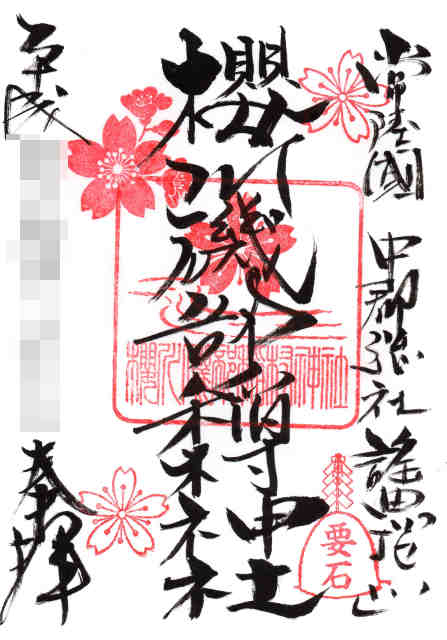 常陸國 中郡總社 謡曲發祥之
櫻川磯部稲村神社
櫻川磯部稲村神社
要石
奉拝
平成